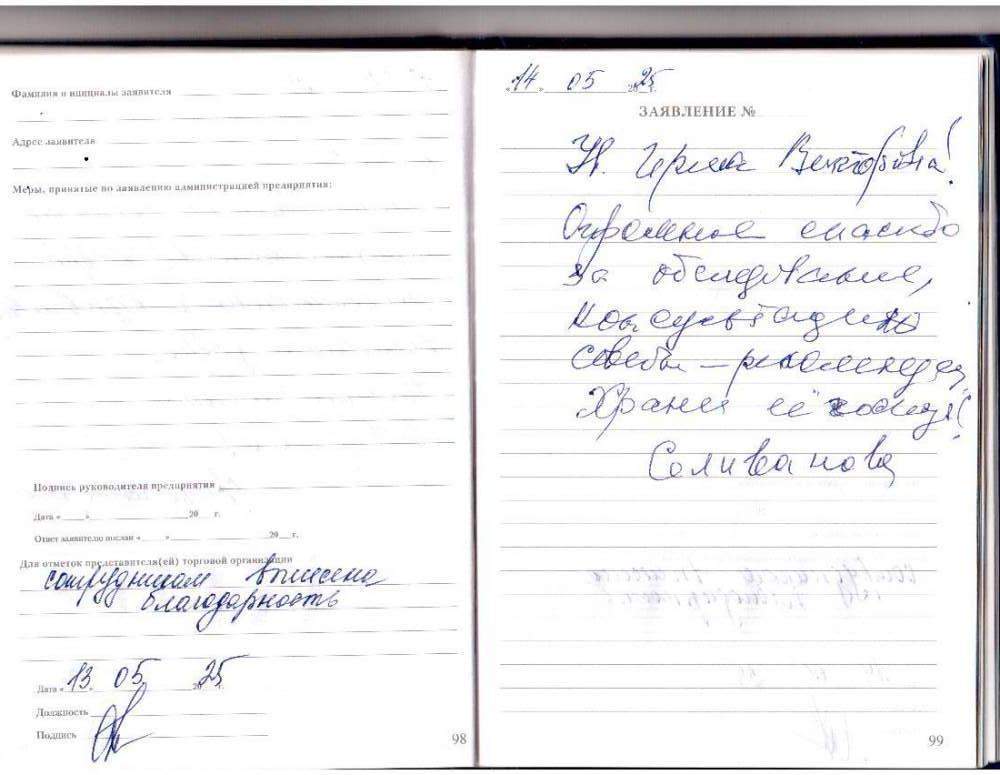 Фамилия и инициалы заявителя
Адрес заявителя
Меры, принятые по заявлению администрацией предприятия:
Подпись руководителя предприятия
Дата «____»____________20___ г.
Ответ заявителю послан «____»____________20___ г.
Для отметок представителя(ей) торговой организации
сотрудникам вынесена
благодарность
Дата «13» 05 2025 г.
Должность
Подпись
98
«14» 05 2025 г.
ЗАЯВЛЕНИЕ №
Ирина Викторовна!
Огромное спасибо
за обследование,
консультацию
советы – рекоменда
Храни её господь!
Селиванова
99